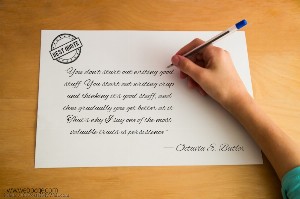 BEST QUOTE
"You don't start out writing good
stuff. You start out writing crap
and thinking it's good stuff, and
then gradually you get better at it.
That's why I say one of the most
valuable traits is persistence."
— Octavia E. Butler